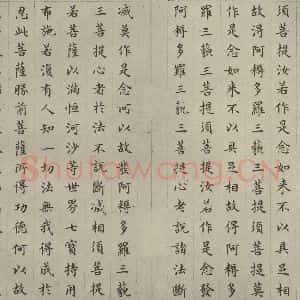 須菩提汝若作是念如來不以具足相
故得阿耨多羅三藐三菩提須菩提莫
作是念如來不以具足相故得阿耨多
羅三藐三菩提須菩提汝若作是念發
阿耨多羅三藐三菩提心者說諸法斷
滅莫作是念何以故發阿耨多羅三藐
三菩提心者於法不說斷滅相須菩提
若菩薩以滿恒河沙等世界七寶持用
布施若復有人知一切法無我得成於
忍此菩薩勝前菩薩所得功德何以故
Shufawang.CN